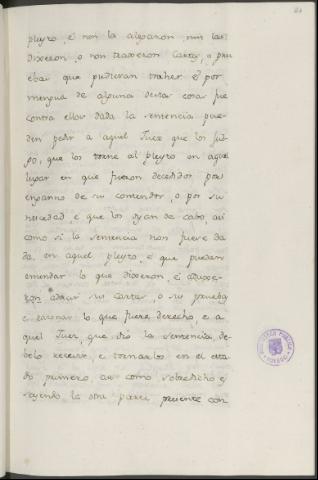 pleyto, é non la algoaron nin las
dixeron, o non traxeron cartas, o pru
ebas que pudieran traher. E por
mengua de alguna destas cosas fue
contra ellos dada la sentencia pue
den pedir a aquel Juez que los juz
gó, que los torne al pleyto en aquel
lugar en que fueron decebidos por
enganno de su contendor, o por su
necedad, é que los oyan de cabo, asi
como si la sentencia non fuese da
da en aquel pleyto, é que puedan
emendar lo que dixeron, é
aducir sus cartas, o su prueba
e razonar lo que fuere derecho, e a
quel Juez, que dió la sentencia, de
belo recevir, e tornarlos en el esta
do primero asi como sobredicho es
seyendo la otra parte presente con